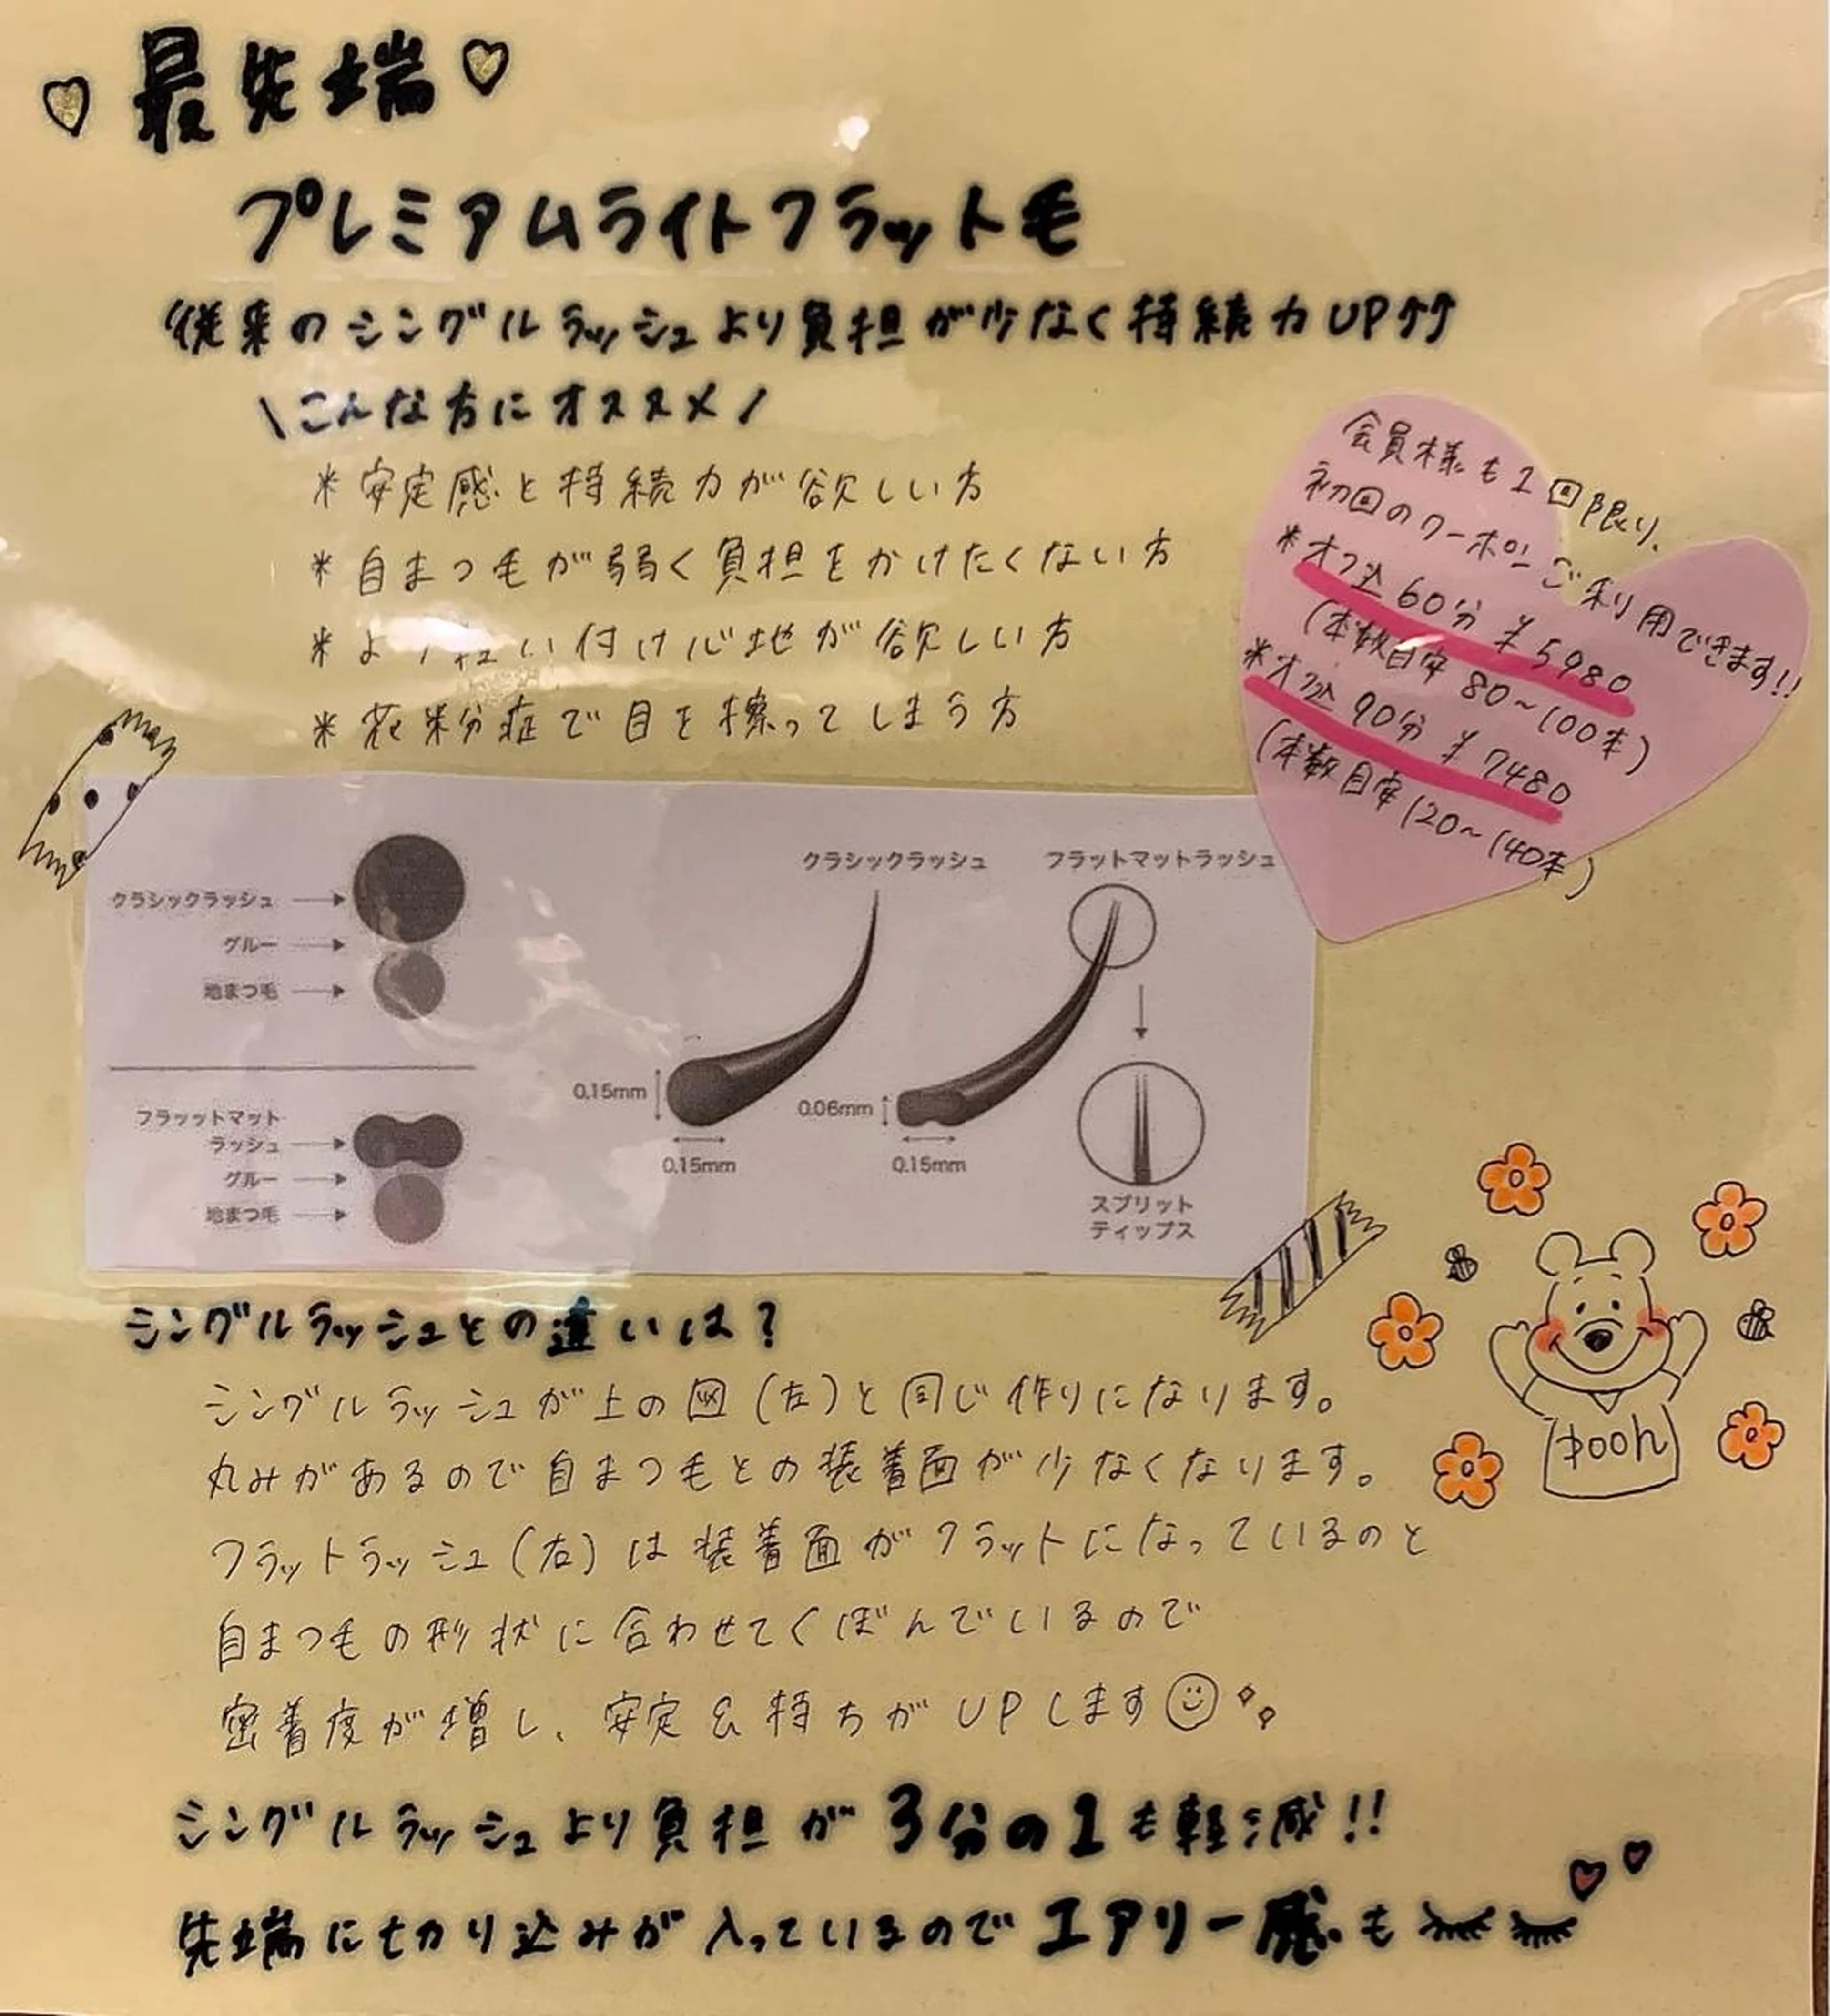 最先端
プレミアムライトフラット毛
従来のシングルラッシュより負担が少なく持続力UP↑↑
\こんな方にオススメ/
*安定感と持続力が欲しい方
*自まつ毛が弱く負担をかけたくない方
*よ い付け心地が欲しい方
*花粉症で目を擦ってしまう方
会員様も1回限り、
初回のクーポンご利用できます!!
*オフ込60分 ¥5980
(本数目安 80~100本)
*オフ込 90分 ¥7480
(本数目安 120~140本)
クラシックラッシュ
グルー
地まつ毛
フラットマット
ラッシュ
グルー
地まつ毛
クラシックラッシュ
0.15mm
0.15mm
フラットマットラッシュ
0.06mm
0.15mm
スプリット
ティップス
シングルラッシュとの違いは?
シングルラッシュが上の図(左)と同じ作りになります。
丸みがあるので自まつ毛との装着面が少なくなります。
フラットラッシュ(右)は装着面がフラットになっているのと
自まつ毛の形状に合わせてくぼんでいるので
密着度が増し、安定&持ちがUPします
pooh
シングルラッシュより負担が3分の1も軽減!!
先端に切り込みが入っているのでエアリー感も